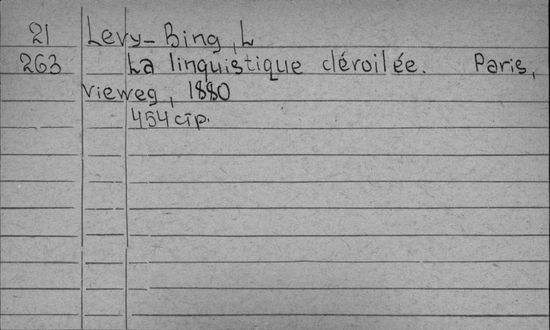 21 Levy-Bing, L
263 La linguistique déroilée. Paris,
Vieweg, 1880
454 стр.